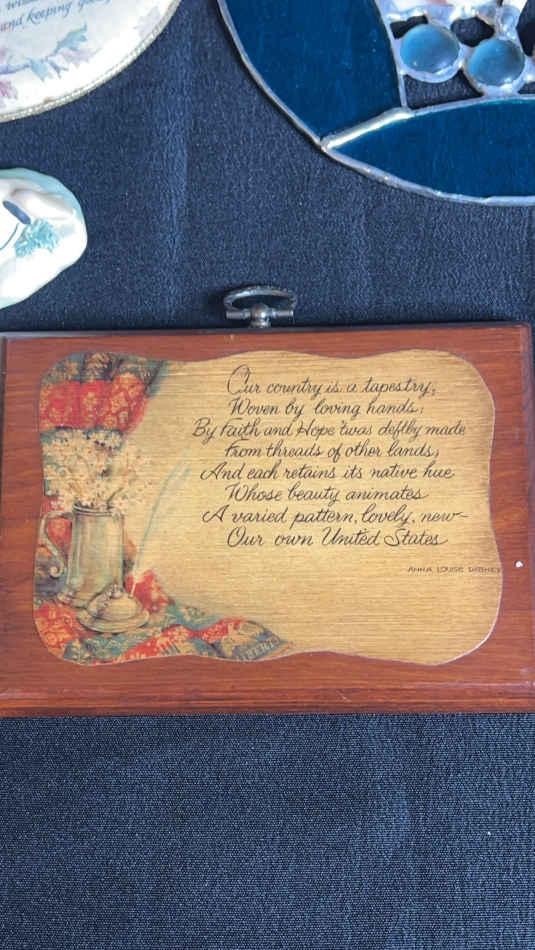 and keeping
Our country is a tapestry,
Woven by loving hands;
By Faith and Hope 'twas deftly made
From threads of other lands;
And each retains its native hue
Whose beauty animates
A varied pattern, lovely, new—
Our own United States
ANNA LOUISE DABNEY